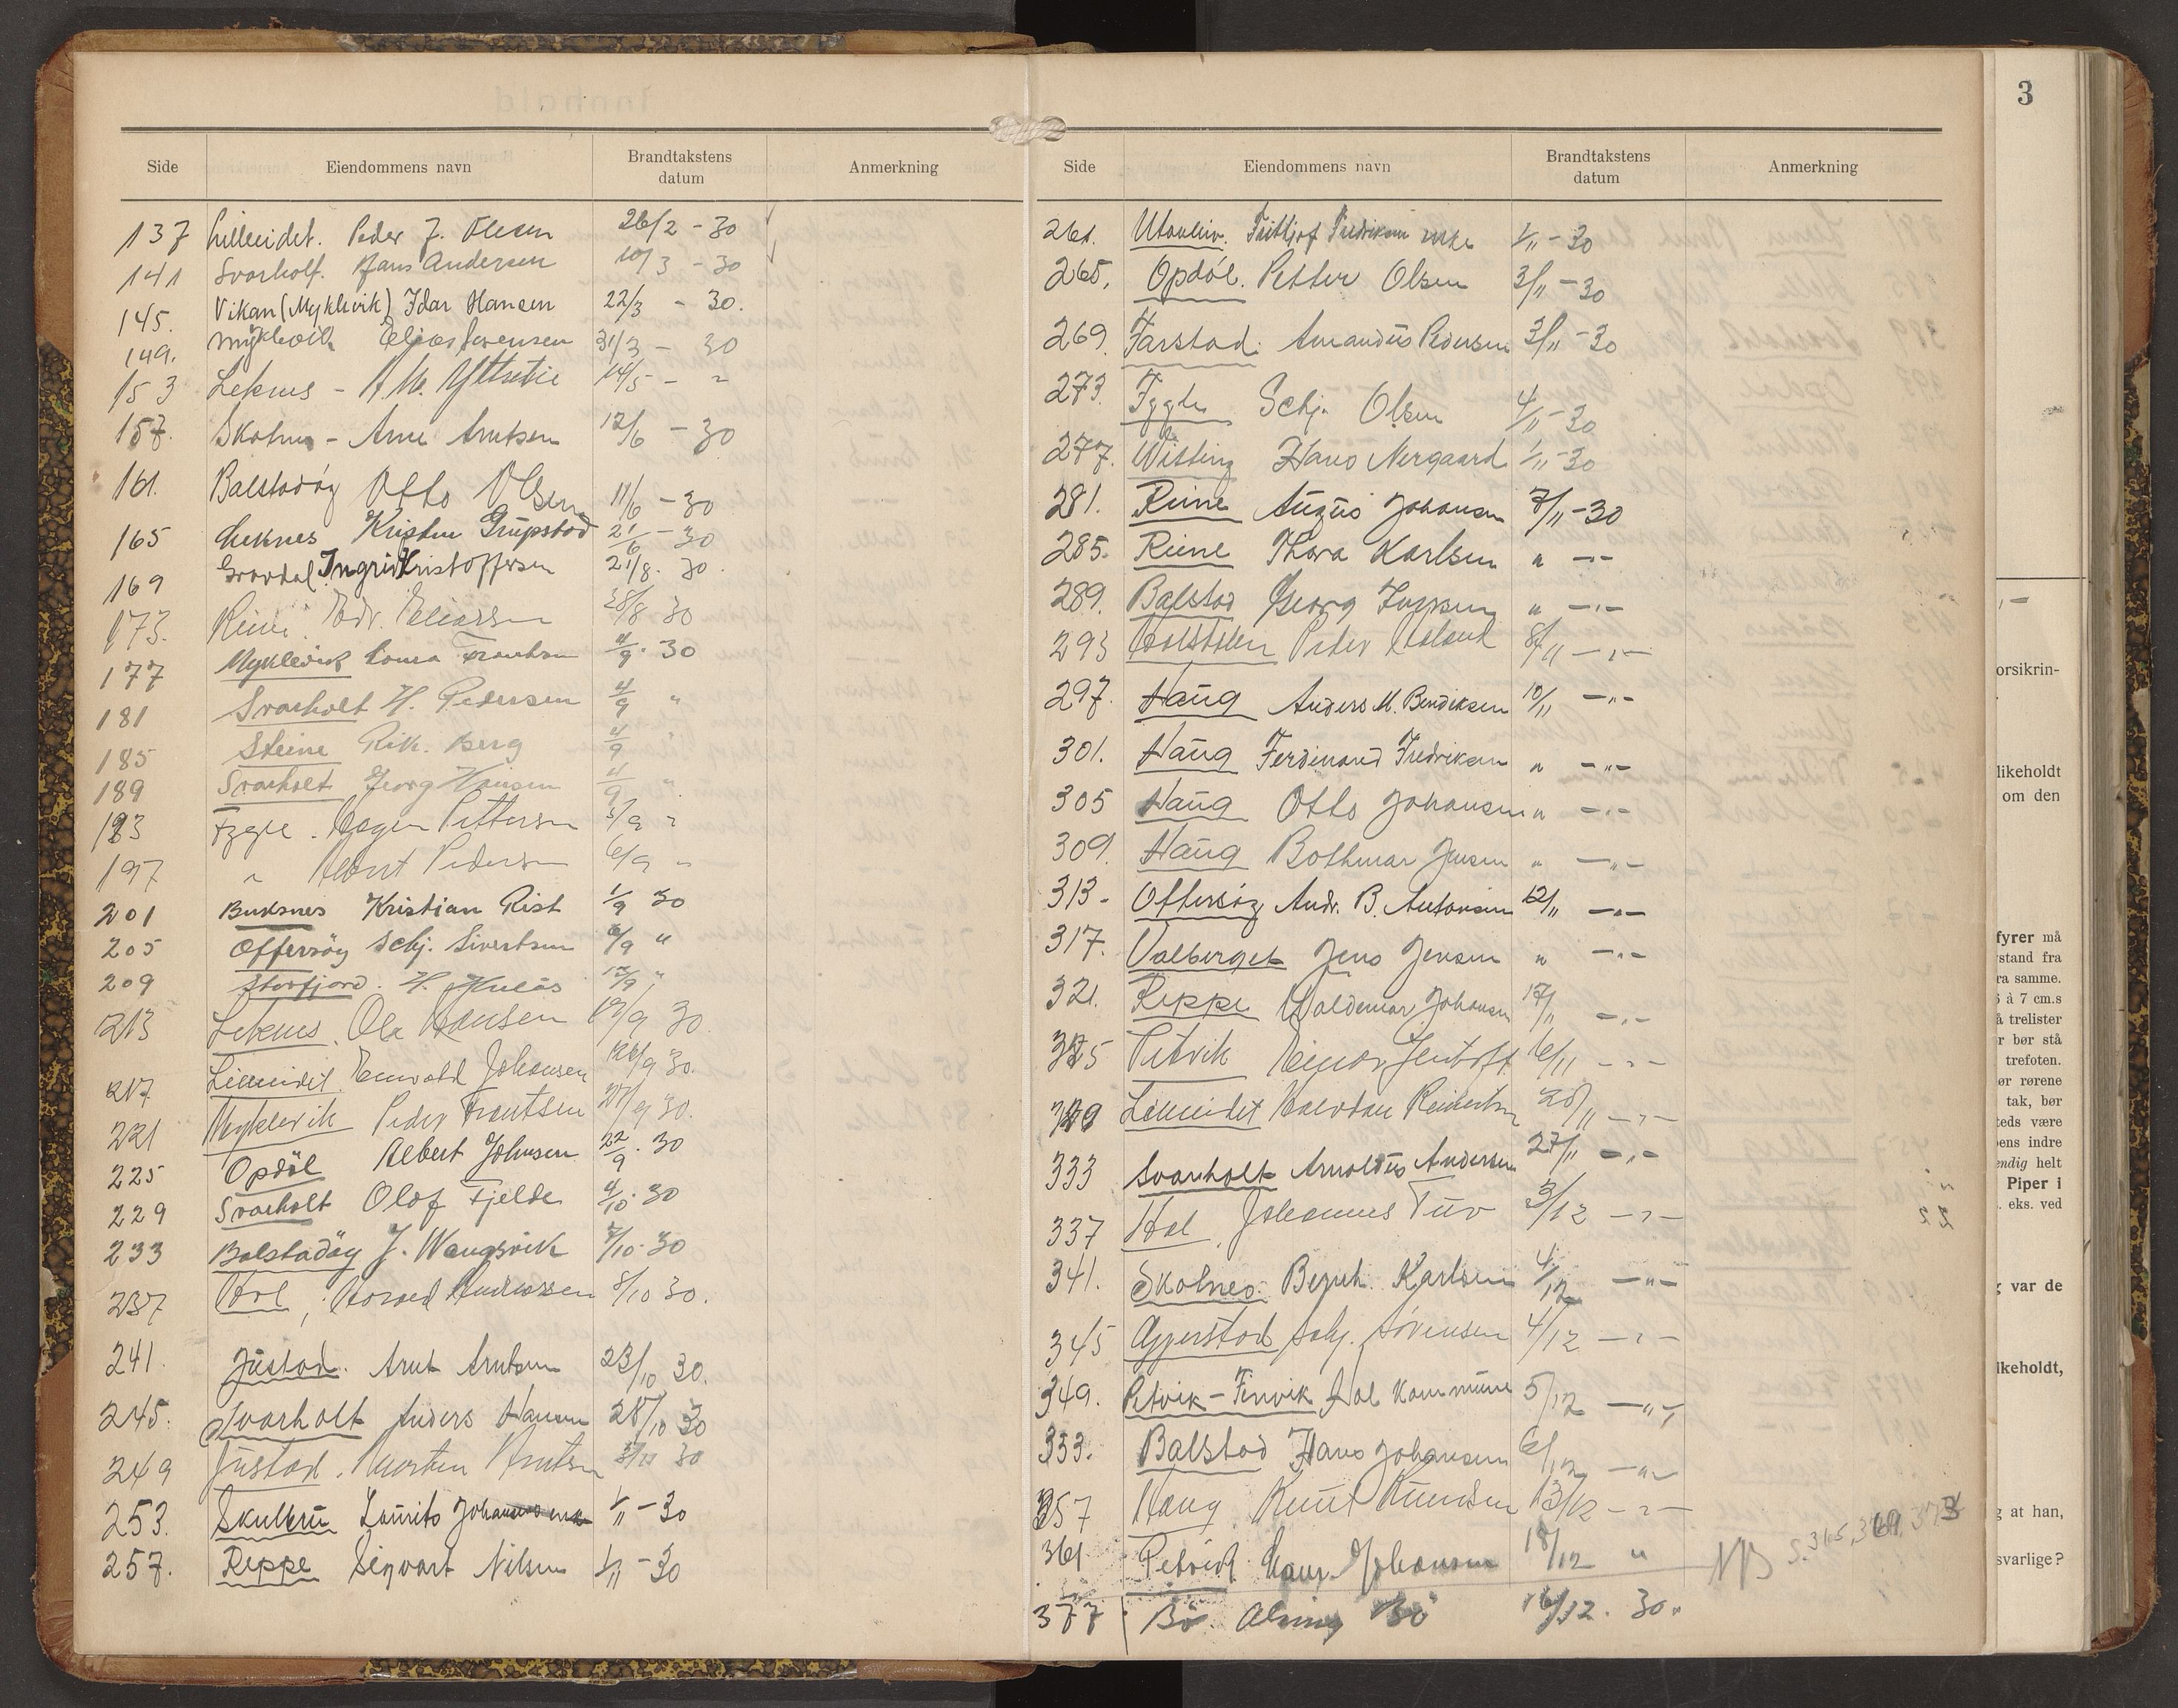 Side Eiendommens navn Brandtakstens datum Anmerkning
137 Lilleeidet. Peder J. Olesen 26/2 - 30
141 Svarholt. Hans Andersen 10/3 - 30
145. Vikan (Myklevik) Idar Hansen 22/3 - 30.
149. Myklevik Elias Sørensen 31/3 - 30
153 Leknes - 14/5 - "
157. Skotnes - Arne Arntsen 12/6 - 30
161. Balstadøy Otto Olsen 11/6 - 30
165 Leknes Kristen Grüpstad 21/6 - 30
169 Gravdal Ingrid Kristoffersen 21/8. 30.
173. Reine. Edv. Eliassen 28/8 30
177 Myklevik Frantsen 4/9. 30
181 Svarholt H. Pedersen 4/9 "
185 Steine Rik. Berg 4/9
189 Svarholt Georg Hansen 4/9 "
193 Fygle. Hagen Pettersen 5/9 "
197 " Albert Pedersen 6/9 "
201 Buksnes Kristian Rist 1/9 30
205 Offersøy Schj. Sivertsen 6/9 "
209 Storfjord. H. 12/9 "
213 Leknes. Ole Hansen 19/9 30.
217 Lilleeidet. Johansen 9 30.
221 Myklevik Peder Frantsen 9 30.
225 Opdøl Albert Johnsen 22/9. 30
229 Svarholt Olaf Fjelde 4/10. 30
233 Balstadöy J. Wangsvik 7/10. 30
237 Hol, Andreassen 8/10 30.
241. Jüstad. Arnt Arntsen 23/10 30.
245. Svarholt Anders Hansen 28/10 30
249 Jüstad. Morten Arntsen 30
253. Skulbrü Laurits Johansens enke 1/11 - 30
257. Reppe Sigvart Nilsen 1/11 - 30
Side Eiendommens navn Brandtakstens datum Anmerkning
261. Fritljof Fredriksens enke 1/11 - 30
265. Opdöl. Petter Olsen 3/11 - 30
269. Farstad. Amandüs Pedersen 3/11 - 30
273. Fygle Schj. Olsen 4/11 - 30
277. Wisting Hans Nergaard 1/11 - 30
281. Reine Augüs Johansen 7/11 - 30
285. Reine Thora Karlsen " - " -
289. Balstad Georg " - " -
293 Peder 8/11 - " -
297. Haüg Anders M. Bendiksen 10/11 - " -
301. Haüg Ferdinand Fredriksen " - " -
305 Haüg Otto Johansen " - " -
309. Haüg Bothmar Jensen " - " -
313- Offersöy Andr. B. Antonsen 12/11 - " -
317. Valberget Jens Jensen " - " -
321. Reppe Valdemar Johansen 17/11 - " -
325 Petvik Einar Jentoft 6/11 - " -
329 Lilleeidet Halvdan Reinertsen 20/11 - " -
333 Svarholt Arnoldüs Andersen 27/11 - " -
337 Hol, Johannes Tüv 3/12 - " -
341. Skotnes. Bernh. Karlsen 4/12 - " -
345 Gjerstad Schj. Sörensen 4/12 - " -
349. Petvik - Finvik Hol Kommüne 5/12 - " -
353. Balstad Hans Johansen 6/12 - " -
357 Haug Knüt Knüdsen 13/12 - " -
361 Petvik Johansen 18/12 " NB S. 365, 369, 373
377 Bö. 16/12. 30.
3
orsikrin-
likeholdt
om den
fyrer må
stand fra
ra samme.
6 à 7 cm.s
å trelister
r bør stå
trefoten.
ør rørene
tak, bør
teds være
ens indre
endig helt
Piper i
. eks. ved
g var de
lkeholdt,
g at han,
svarlige?